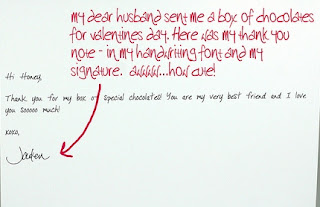 my dear husband sent me a box of chocolates
for valentines day. Here was my thank you
note - in my handwriting font and my
signature. awwww...how cute!
Hi Honey,
Thank you for my box of special chocolates! You are my very best friend and I love
you sooooo much!
xoxo,